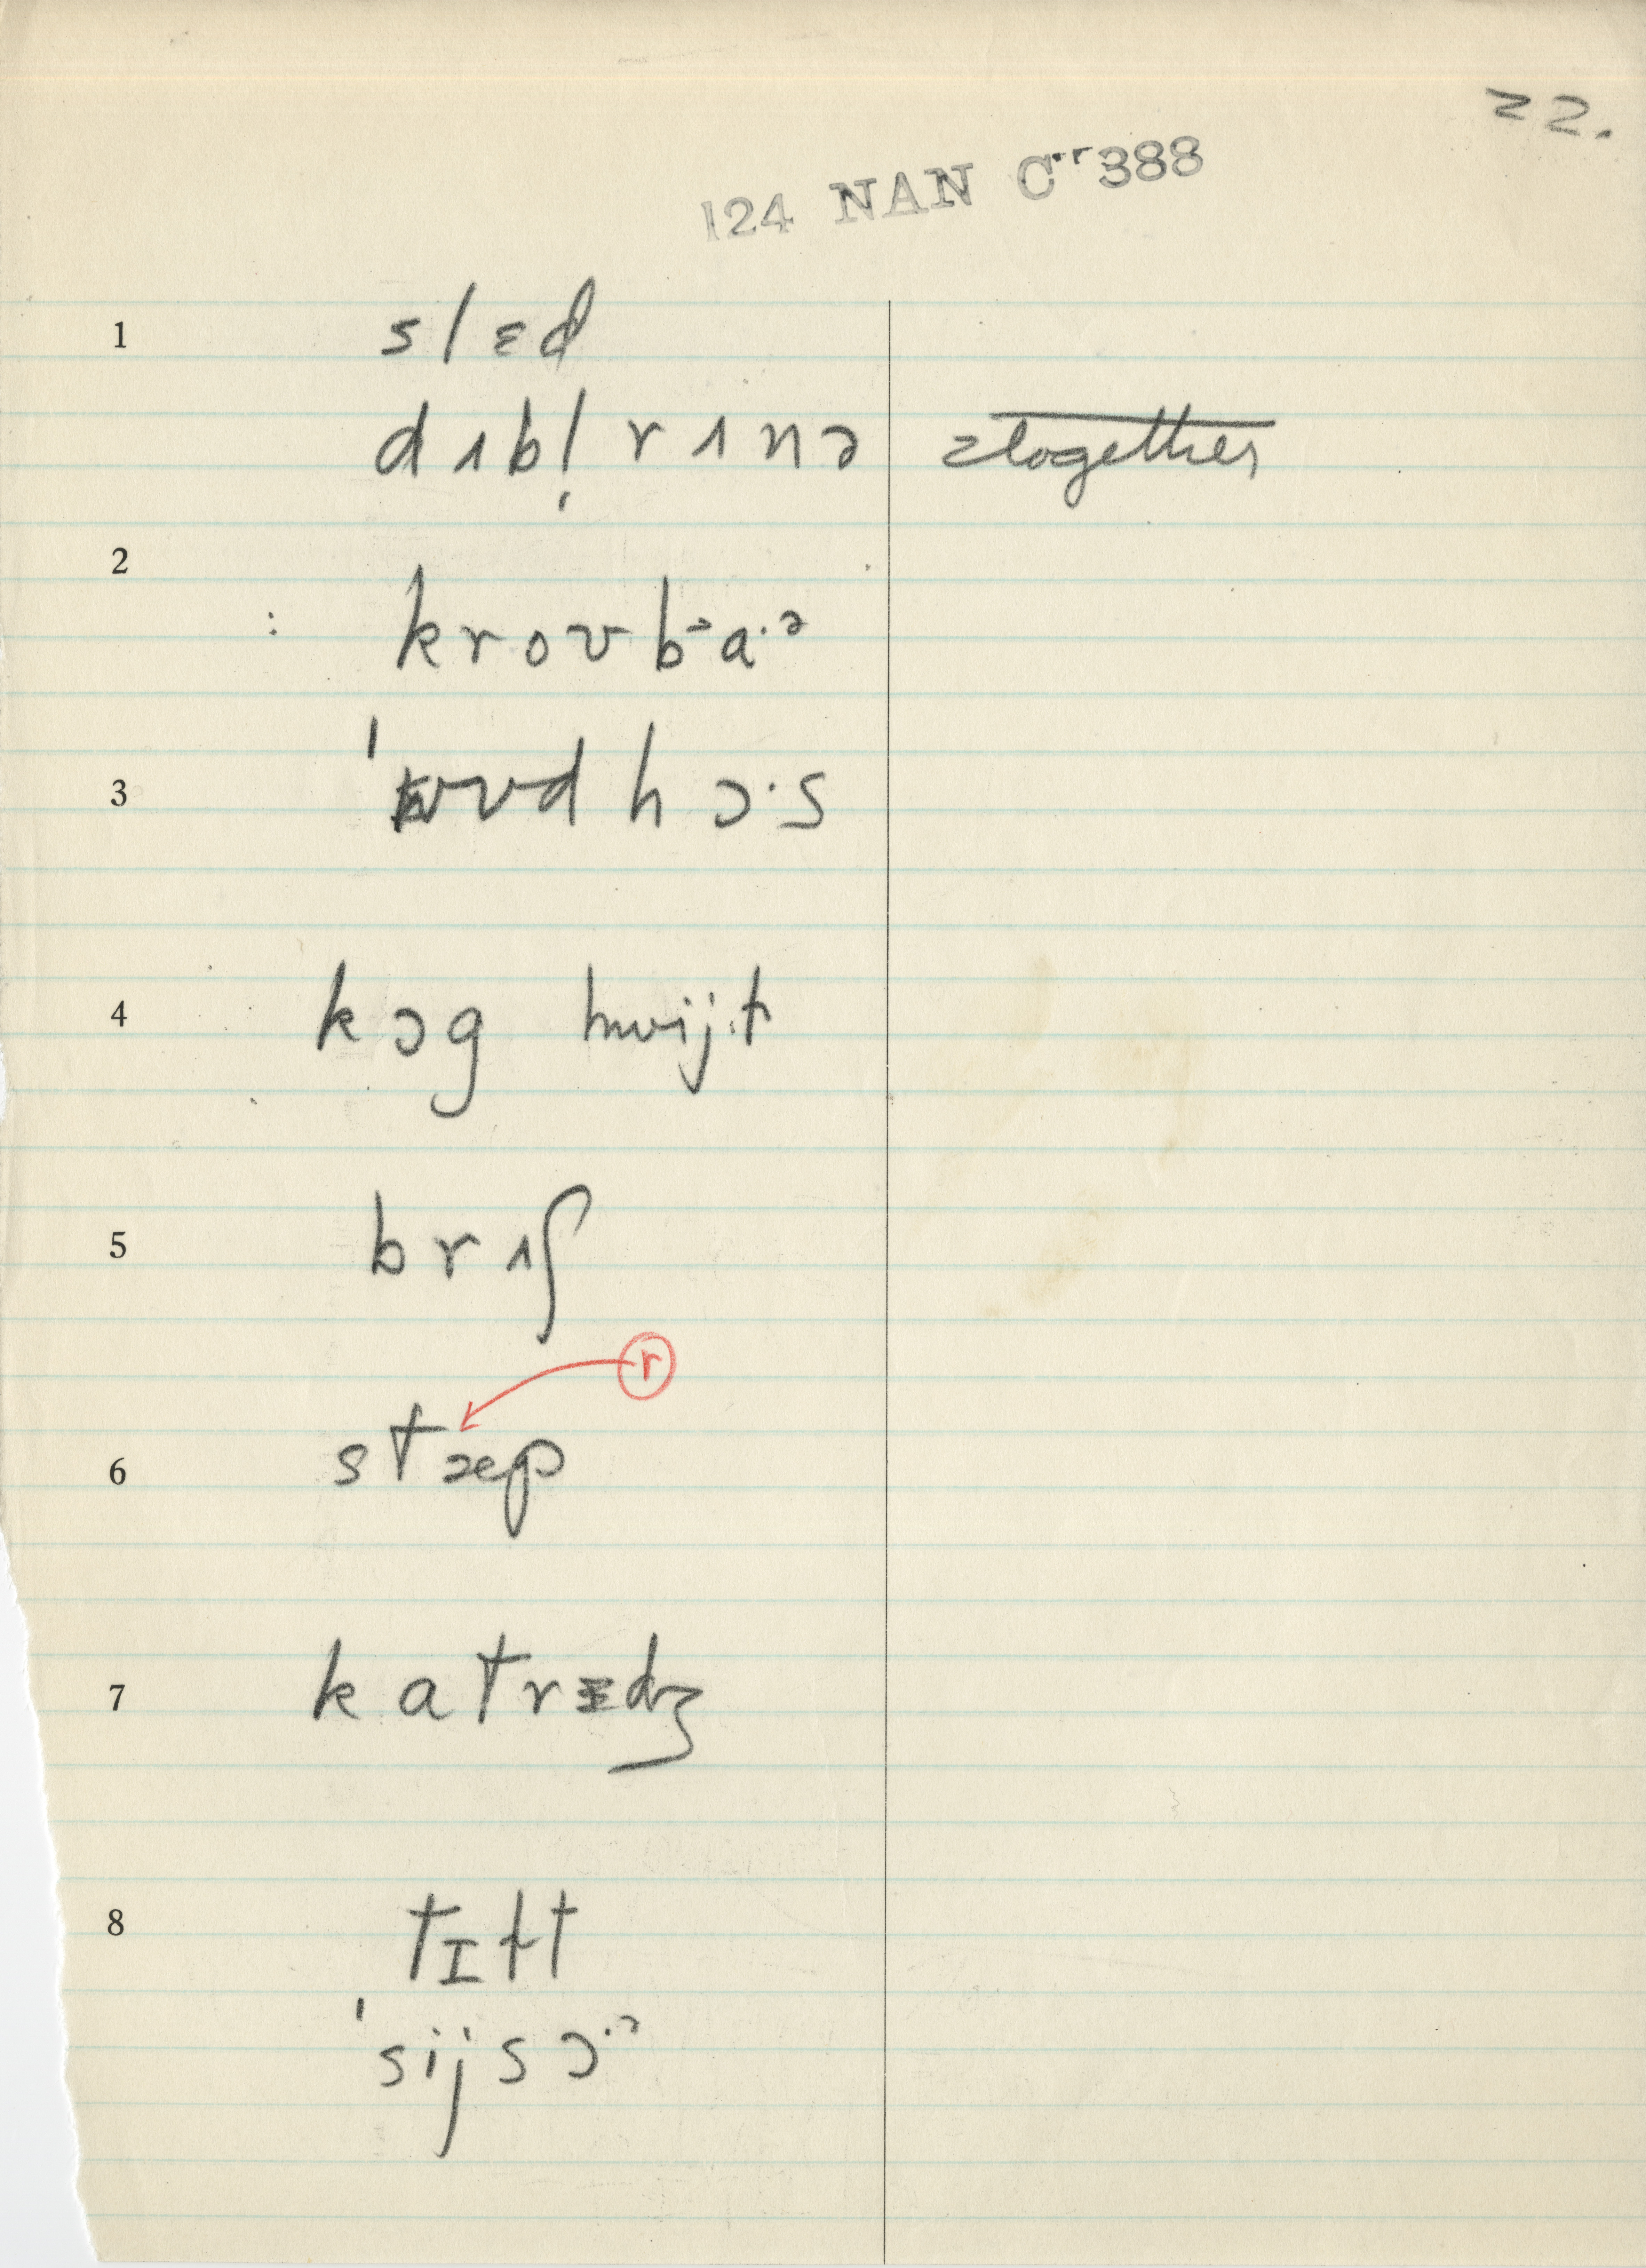 22.
124 NAN C 388
1 slɛd
dʌbl̩ rʌnə altogether
2
: kroʊbᵊa·ᵊ
3 ˈwʊdhɔ·s
4 kɔg hwijt
5 brʌʃ
r
6 stræp
7 katrɛdʒ
8 tɪɫt
ˈsijsɔ·ᵊ